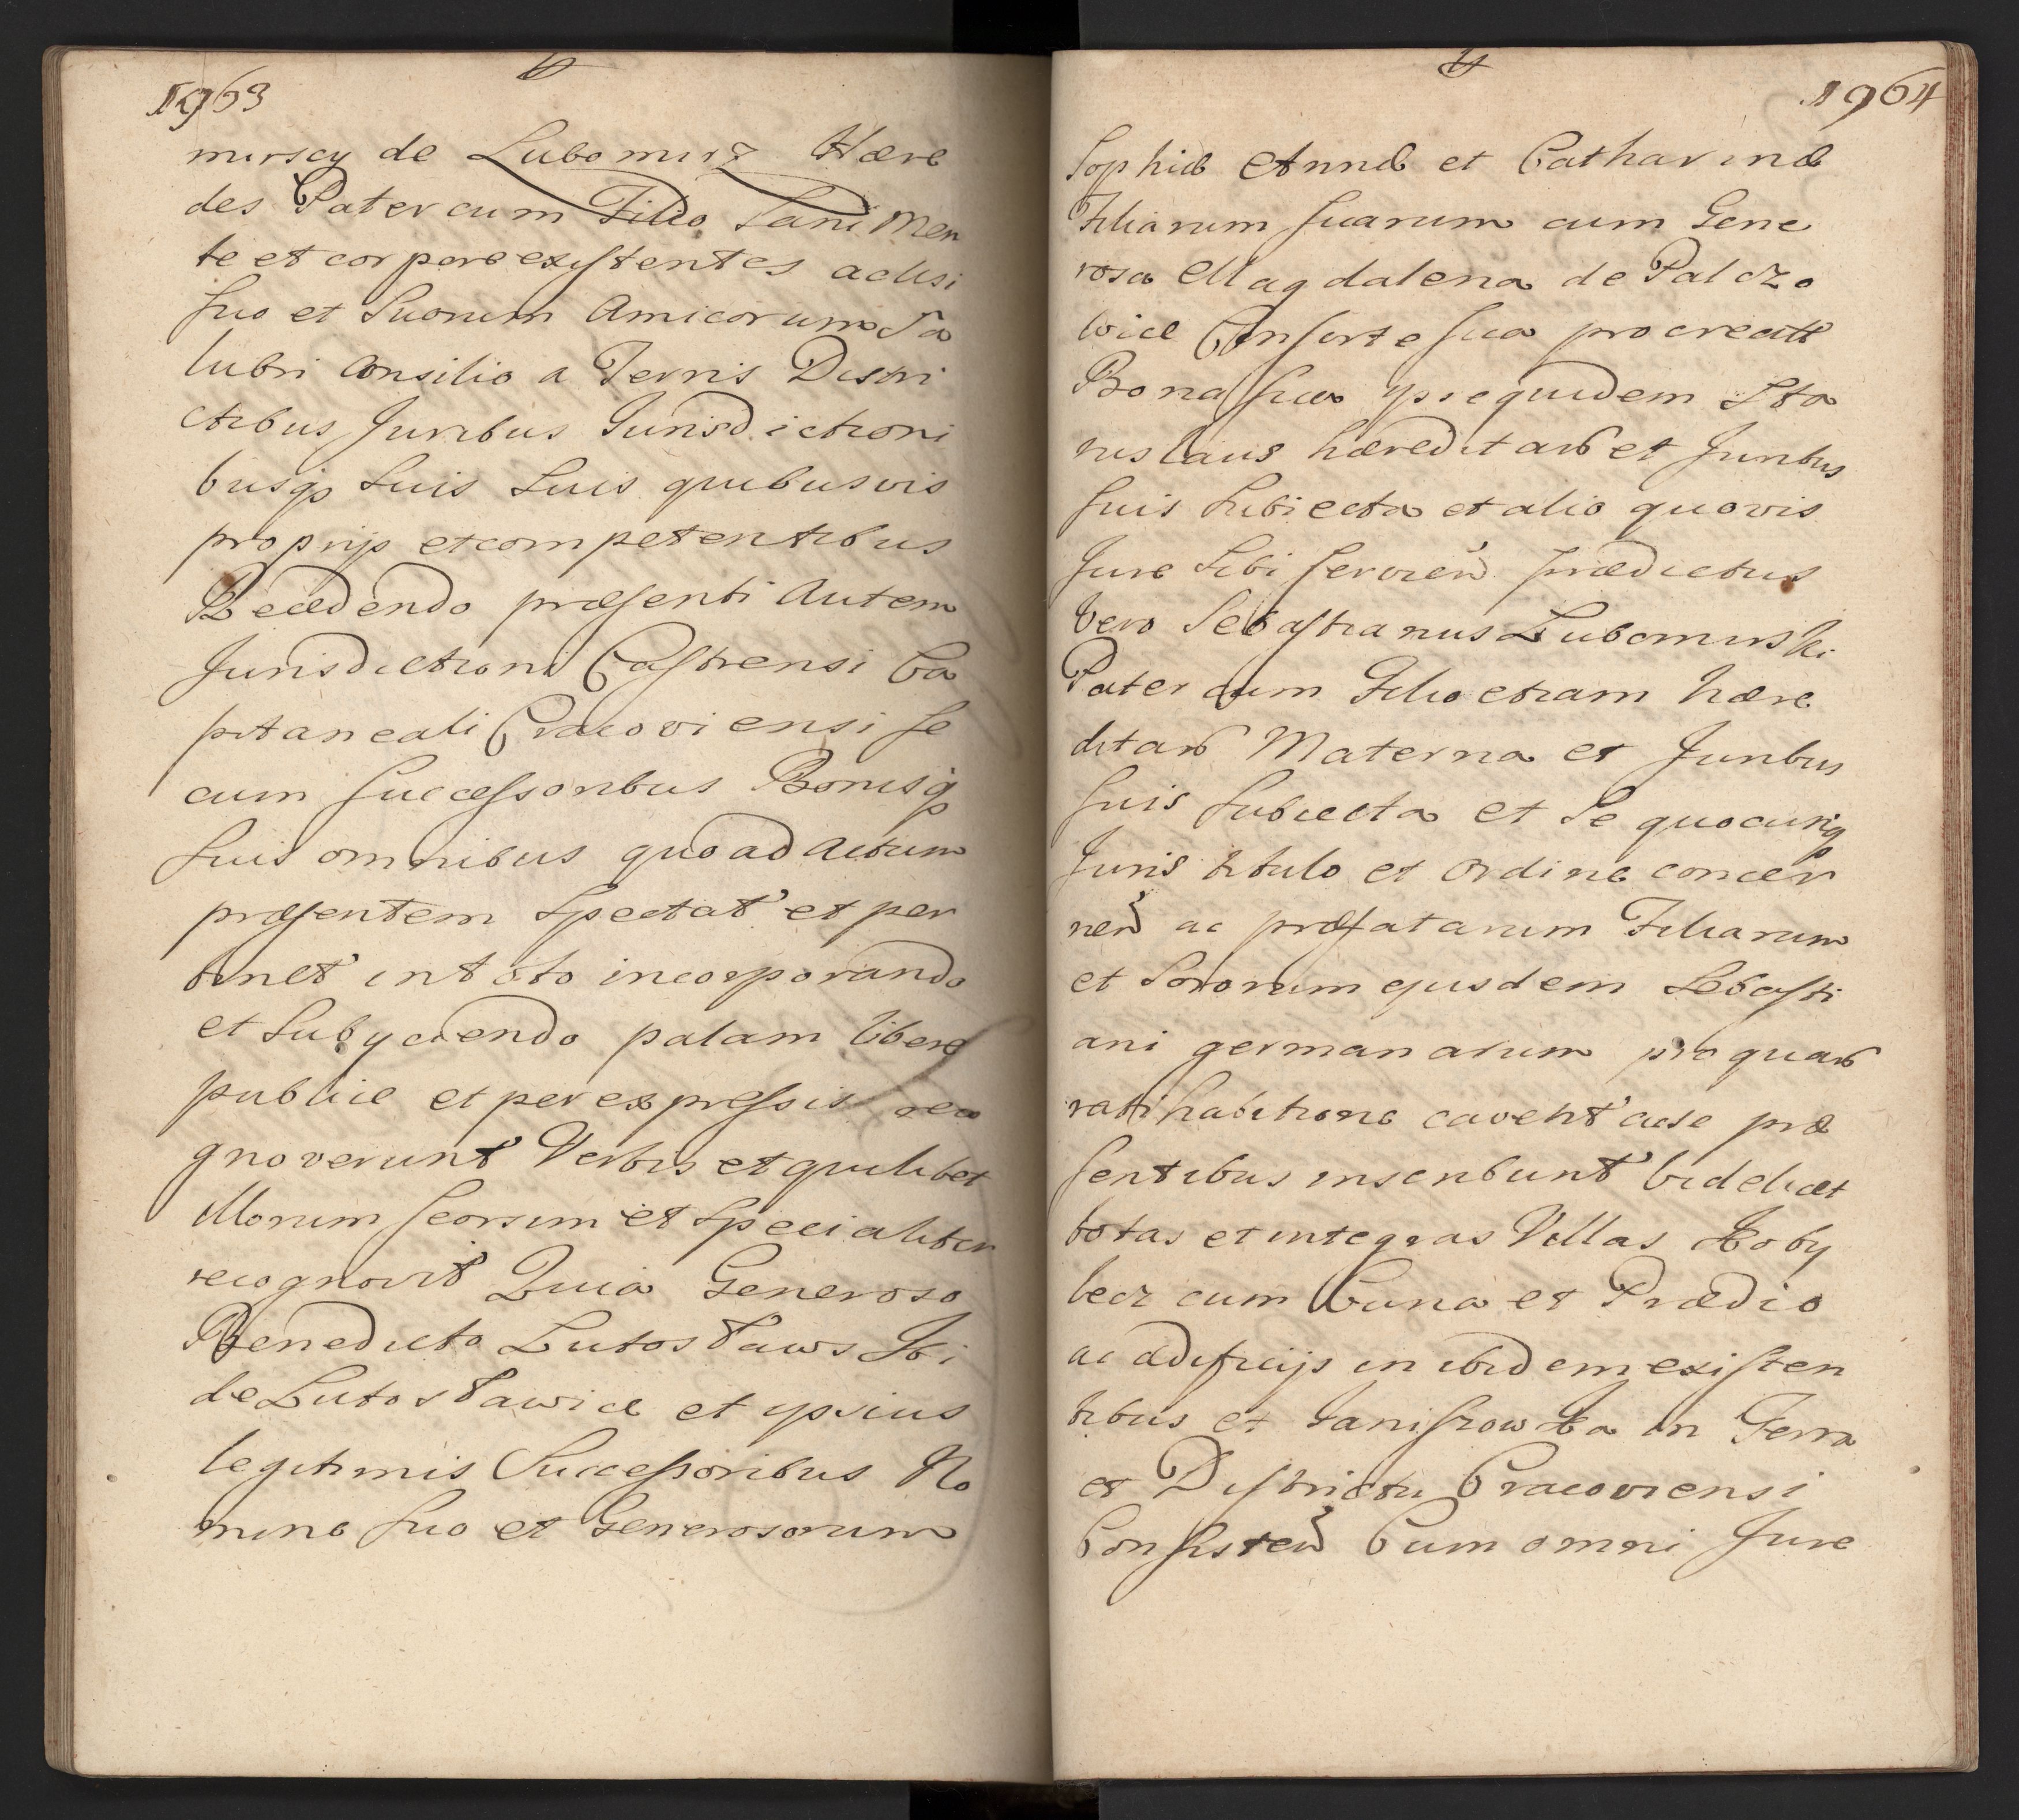 1963
mirscy de Lubomirz Hære
des Pater cum Filio Sani Men
te et corpore existentes ac usi
suo et Suorum Amicorum Sa
lubri Consilio a Terris Distri
ctibus Juribus Jurisdictioni
busqȝ Suis Suis quibusvis
proprijs et competentibus
Recedendo præsenti Autem
Jurisdictioni Castrensi Ca
pitaneali Cracoviensi se
cum successoribus Bonisqȝ
suis omnibus quo ad Actum
præsentem Spectat et per
tinet in toto incorporando
et Subyciendo palam libere
publice et per expressis reco
gnoverunt Verbis et quilibet
Illorum seorsim et Specialiter
recognovit Quia Generoso
Benedicto Lutosławski
de Lutosławice et ipsius
legitimis Successoribus No
mine suo et Generosorum
1964
Sophiæ Annæ et Catharinæ
Filiarum suarum cum Gene
rosa Magdalena de Palczo
wice Consorte sua procreatt
Bona sua ipse quidem Sta
nislaus hæreditaria et Juribus
suis Subiecta et alio quovis
Jure Sibi servien prædictus
vero Sebastianus Lubomirski
Pater cum Filio etiam hære
ditaria Materna et Juribus
suis Subiecta et Se quocunqȝ
Juris titulo et Ordine concer
nen ac præfatarum Filiarum
et Sororum ejusdem Sebasti
ani germanarum pro quarum
ratihabitione cavent ac se præ
sentibus inscribunt videlicet
totas et integras Villas Koby
lecz cum Curia et Prædio
ac ædificijs in ibidem existen
tibus et Janiszowka in Terra
et Districtu Cracoviensi
Consisten Cum omni Jure